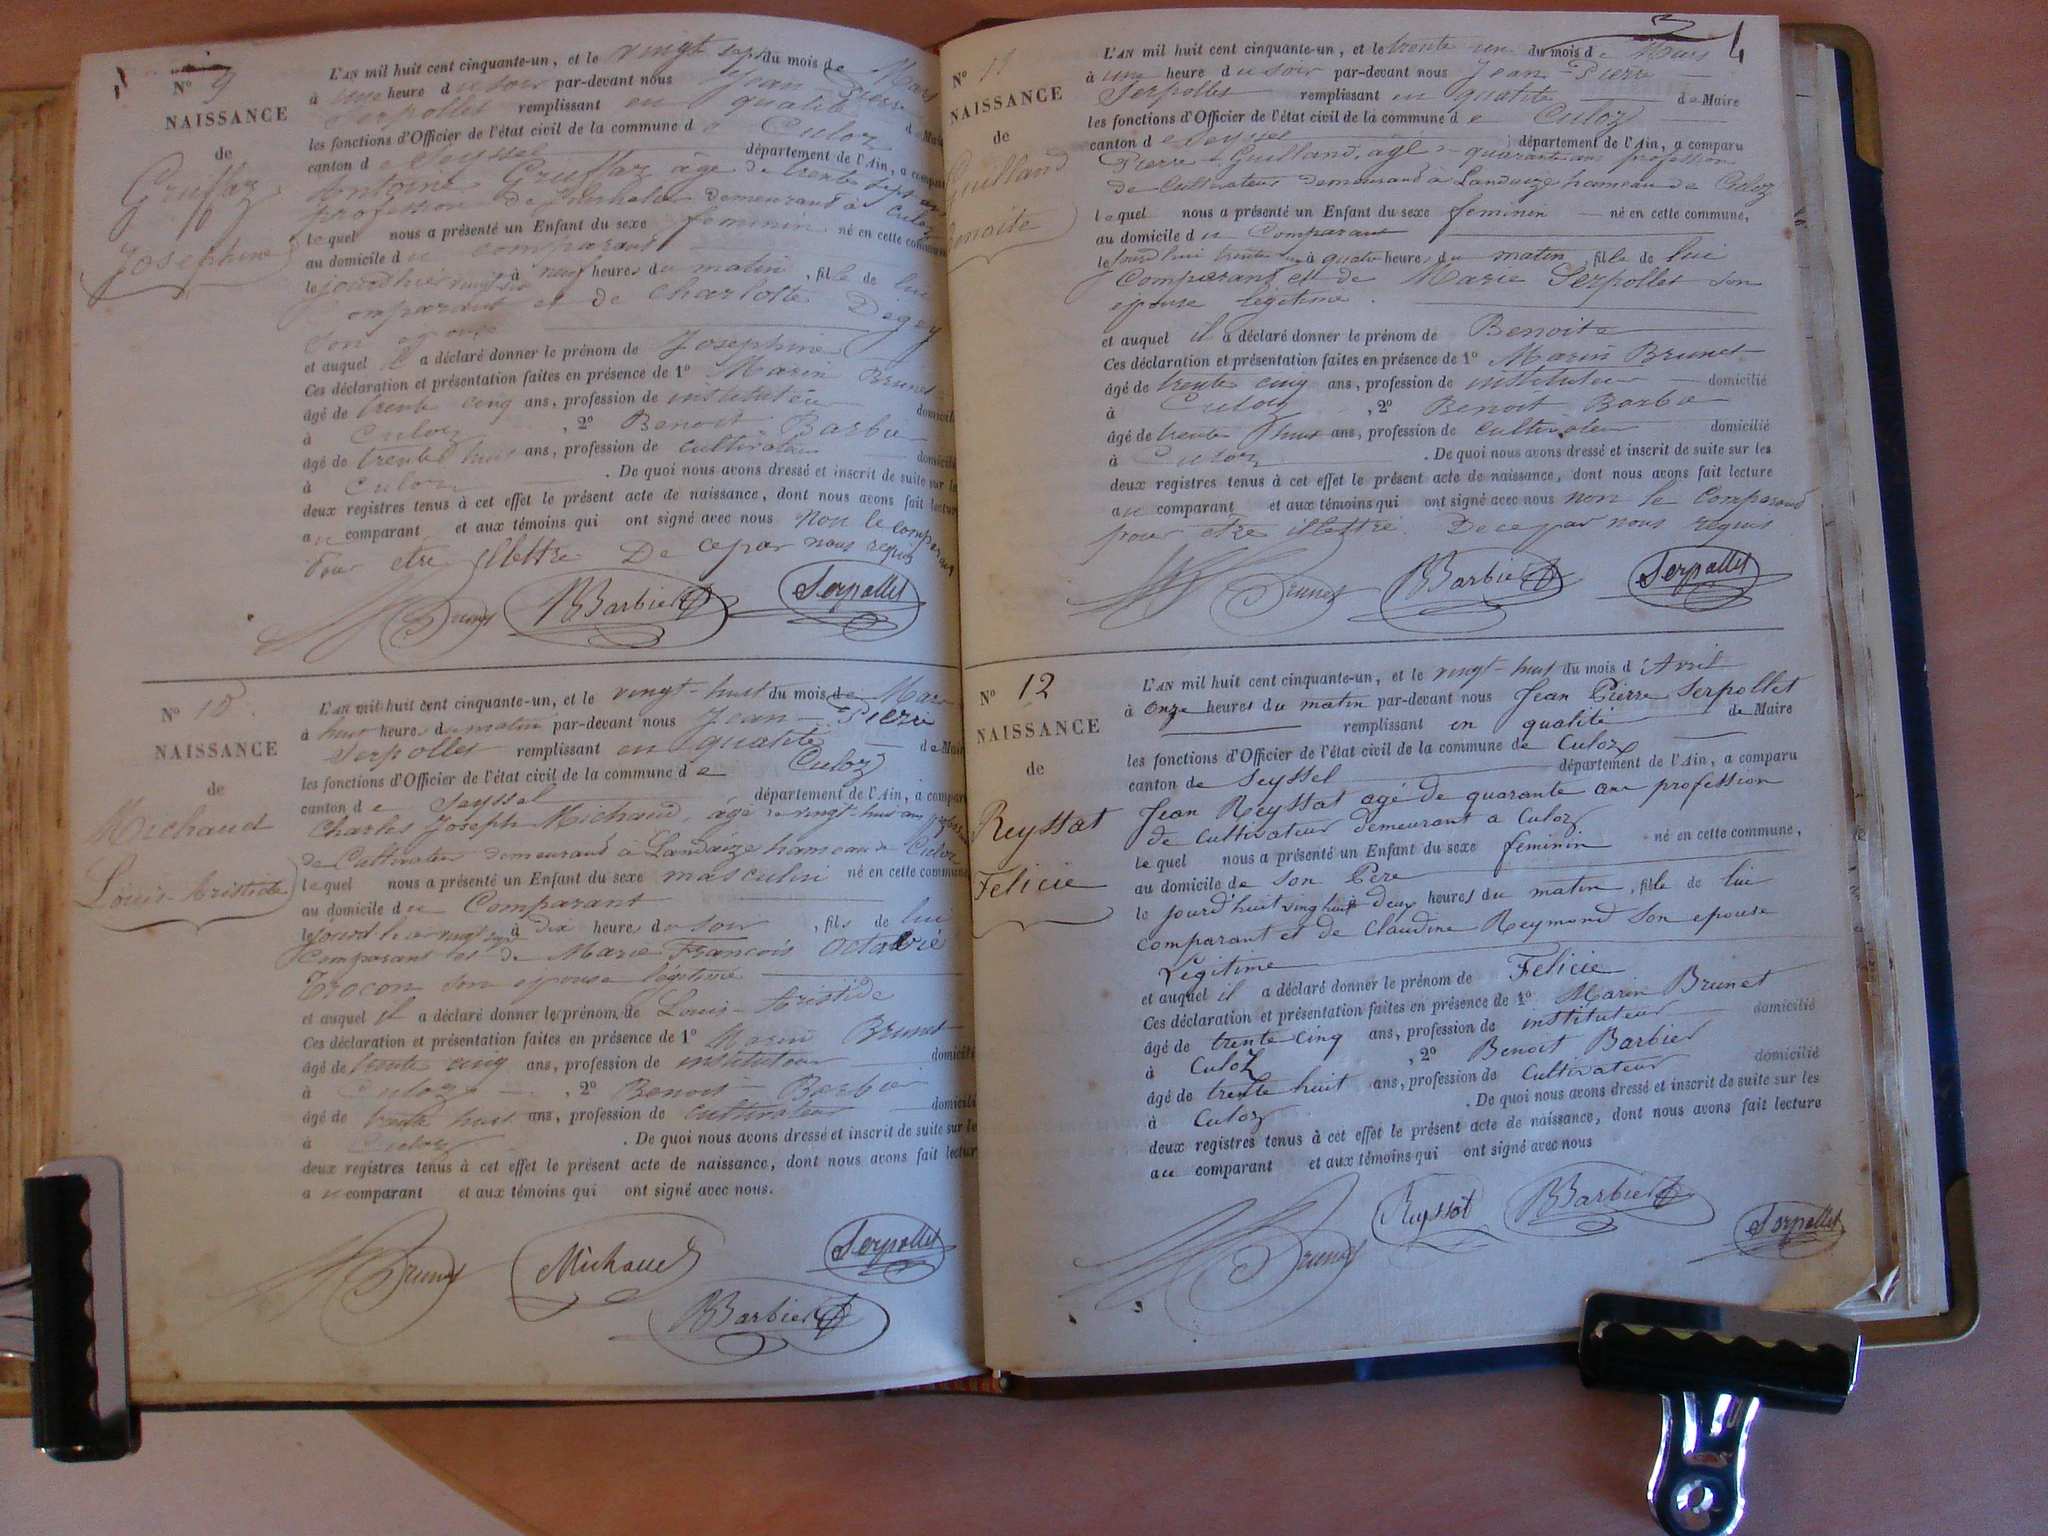 N° 9
NAISSANCE
de
Gruffaz
Josephine
L'AN mil huit cent cinquante-un, et le vingt sept du mois de Mars
à une heure du soir par-devant nous Jean Pierre
Serpollet remplissant en qualité de Maire
les fonctions d'Officier de l'état civil de la commune de Culoz
canton de Seyssel département de l'Ain, a comparu
Antoine Gruffaz âgé de trente sept ans
profession de demeurant à Culoz
lequel nous a présenté un Enfant du sexe feminin né en cette commune,
au domicile du comparant
le jourdhier vingt six à neuf heures du matin, fille de lui
comparant et de Charlotte Degey
son epouse
et auquel il a déclaré donner le prénom de Josephine
Ces déclaration et présentation faites en présence de 1° Marin Brunet
âgé de trente cinq ans, profession de instituteur domicilié
à Culoz, 2° Benoit Barbier
âgé de trente huit ans, profession de cultivateur domicilié
à Culoz. De quoi nous avons dressé et inscrit de suite sur les
deux registres tenus à cet effet le présent acte de naissance, dont nous avons fait lecture
au comparant et aux témoins qui ont signé avec nous non le comparant
Pour etre illettré De ce par nous requis
Brunet BBarbier Serpollet
N° 10.
NAISSANCE
de
Michaud
Louis-Aristide
L'AN mil huit cent cinquante-un, et le vingt-huit du mois de Mars
à huit heures du matin par-devant nous Jean-Pierre
Serpollet remplissant en qualité de Maire
les fonctions d'Officier de l'état civil de la commune de Culoz
canton de Seyssel département de l'Ain, a comparu
Charles Joseph Michaud, âgé de vingt-huit ans profession
de Cultivateur demeurand à Landaize hameau de Culoz
lequel nous a présenté un Enfant du sexe masculin né en cette commune
au domicile du Comparant
le jourd'hier vingt sept à dix heures du soir, fils de lui
Comparant et de Marie François Octavie
Trocon son epouse légitime
et auquel il a déclaré donner le prénom de Louis-Aristide
Ces déclaration et présentation faites en présence de 1° Marin Brunet
âgé de trente cinq ans, profession de instituteur domicilié
à Culoz, 2° Benoit Barbier
âgé de trente huit ans, profession de cultivateur domicilié
à Culoz. De quoi nous avons dressé et inscrit de suite sur les
deux registres tenus à cet effet le présent acte de naissance, dont nous avons fait lecture
au comparant et aux témoins qui ont signé avec nous.
Brunet Michaud Serpollet
BBarbier
4
N° 11
NAISSANCE
de
Guilland
Benoite
L'AN mil huit cent cinquante-un, et le trente un du mois de Mars
à une heure du soir par-devant nous Jean-Pierre
Serpollet remplissant en qualité de Maire
les fonctions d'Officier de l'état civil de la commune de Culoz
canton de Seyssel département de l'Ain, a comparu
Pierre Guilland, agé quarante ans profession
de Cultivateur demeurand à Landaize hameau de Culoz
lequel nous a présenté un Enfant du sexe feminin né en cette commune,
au domicile du Comparant
le jourd'hui trente un à quatre heures du matin, fille de lui
Comparant et de Marie Serpollet son
epouse légitime.
et auquel il a déclaré donner le prénom de Benoite
Ces déclaration et présentation faites en présence de 1° Marin Brunet
âgé de trente cinq ans, profession de instituteur domicilié
à Culoz, 2° Benoit Barbier
âgé de trente huit ans, profession de cultivateur domicilié
à Culoz. De quoi nous avons dressé et inscrit de suite sur les
deux registres tenus à cet effet le présent acte de naissance, dont nous avons fait lecture
au comparant et aux témoins qui ont signé avec nous non le Comparand
pour etre illettré. De ce par nous requis
Brunet BBarbier Serpollet
N° 12
NAISSANCE
de
Reyssat
Felicie
L'AN mil huit cent cinquante-un, et le vingt-huit du mois d'Avril
à onze heures du matin par-devant nous Jean Pierre Serpollet
remplissant en qualité de Maire
les fonctions d'Officier de l'état civil de la commune de Culoz
canton de Seyssel département de l'Ain, a comparu
Jean Reyssat agé de quarante ans profession
de cultivateur demeurant a Culoz
lequel nous a présenté un Enfant du sexe feminin né en cette commune,
au domicile de son Pere
le jourd'huit vingt huit à deux heures du matin, fille de lui
comparant et de Claudine Reymond Son epouse
Légitime
et auquel il a déclaré donner le prénom de Felicie
Ces déclaration et présentation faites en présence de 1° Marin Brunet
âgé de trente cinq ans, profession de instituteur domicilié
à Culoz, 2° Benoit Barbier
âgé de trente huit ans, profession de Cultivateur domicilié
à Culoz. De quoi nous avons dressé et inscrit de suite sur les
deux registres tenus à cet effet le présent acte de naissance, dont nous avons fait lecture
au comparant et aux témoins qui ont signé avec nous
Brunet Reyssat BBarbier Serpollet